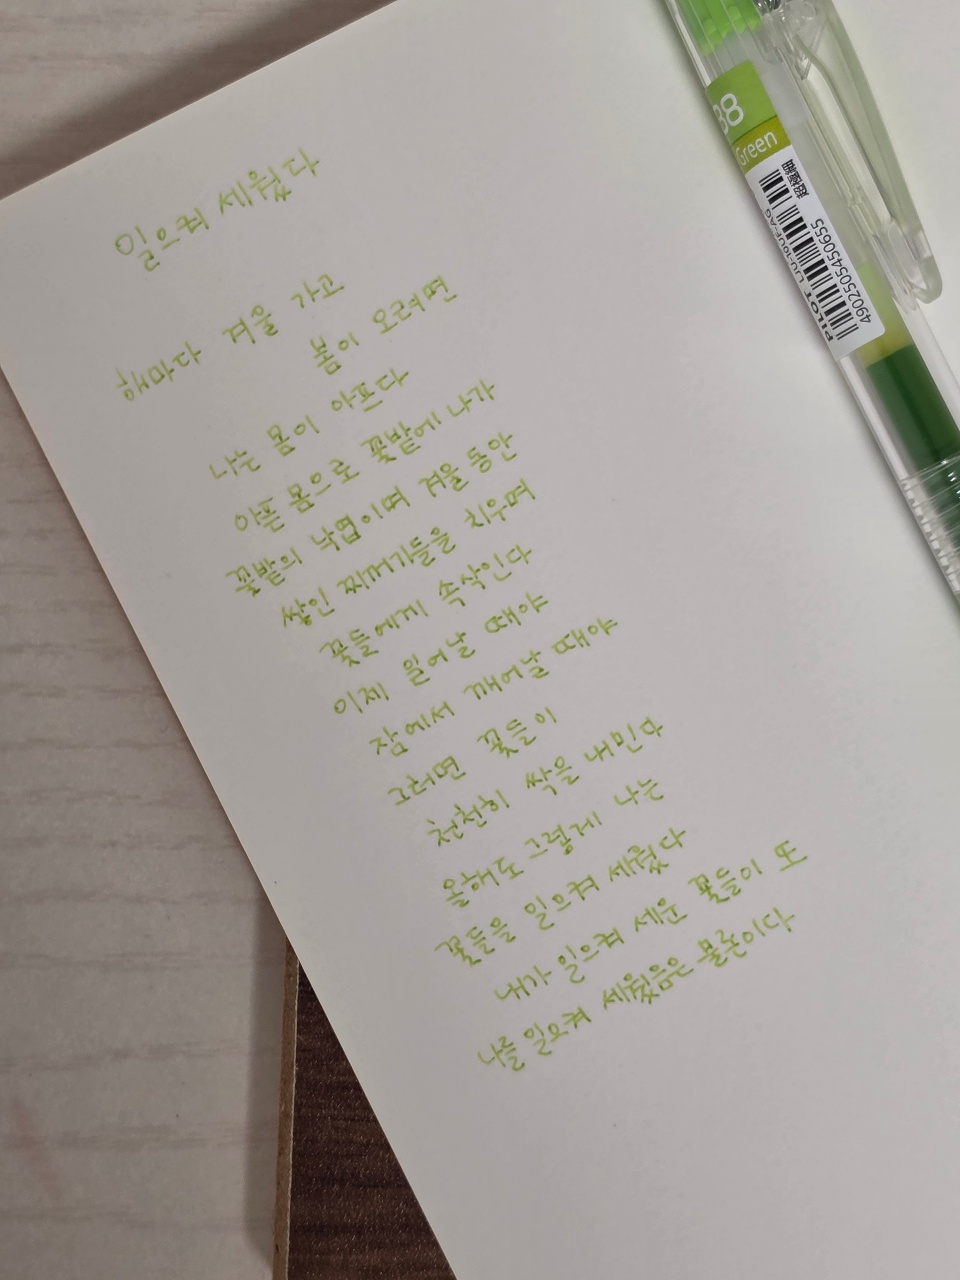 일으켜 세웠다
해마다 겨울 가고
봄이 오려면
나는 몸이 아프다
아픈 몸으로 꽃밭에 나가
꽃밭의 낙엽이며 겨울 동안
쌓인 찌꺼기들을 치우며
꽃들에게 속삭인다
이제 일어날 때야
잠에서 깨어날 때야
그러면 꽃들이
천천히 싹을 내민다
올해도 그렇게 나는
꽃들을 일으켜 세웠다
내가 일으켜 세운 꽃들이 또
나를 일으켜 세웠음은 물론이다
38
Green
PILOT LJU-10UF-AG
超極細
4902505450655